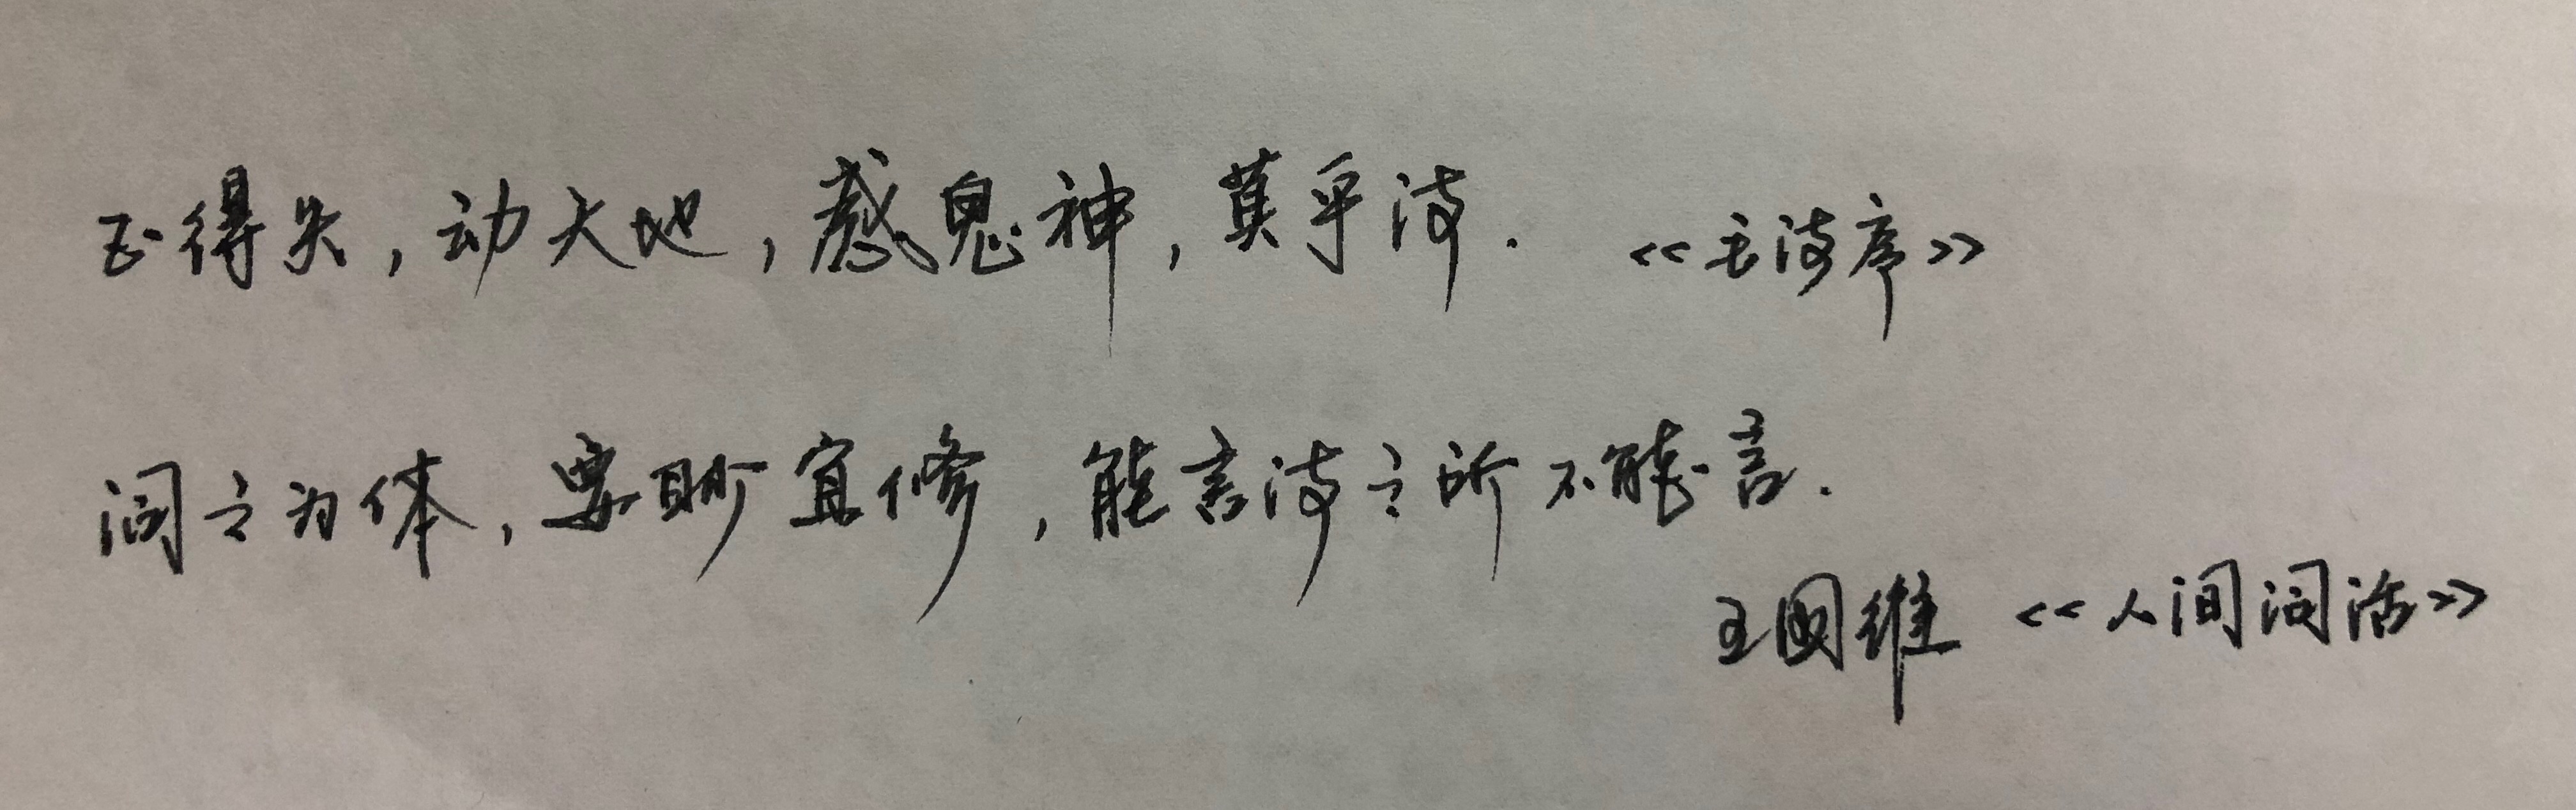 正得失,动天地,感鬼神,莫乎诗. <<毛诗序>>
词之为体,要眇宜修,能言诗之所不能言.
王国维 <<人间词话>>